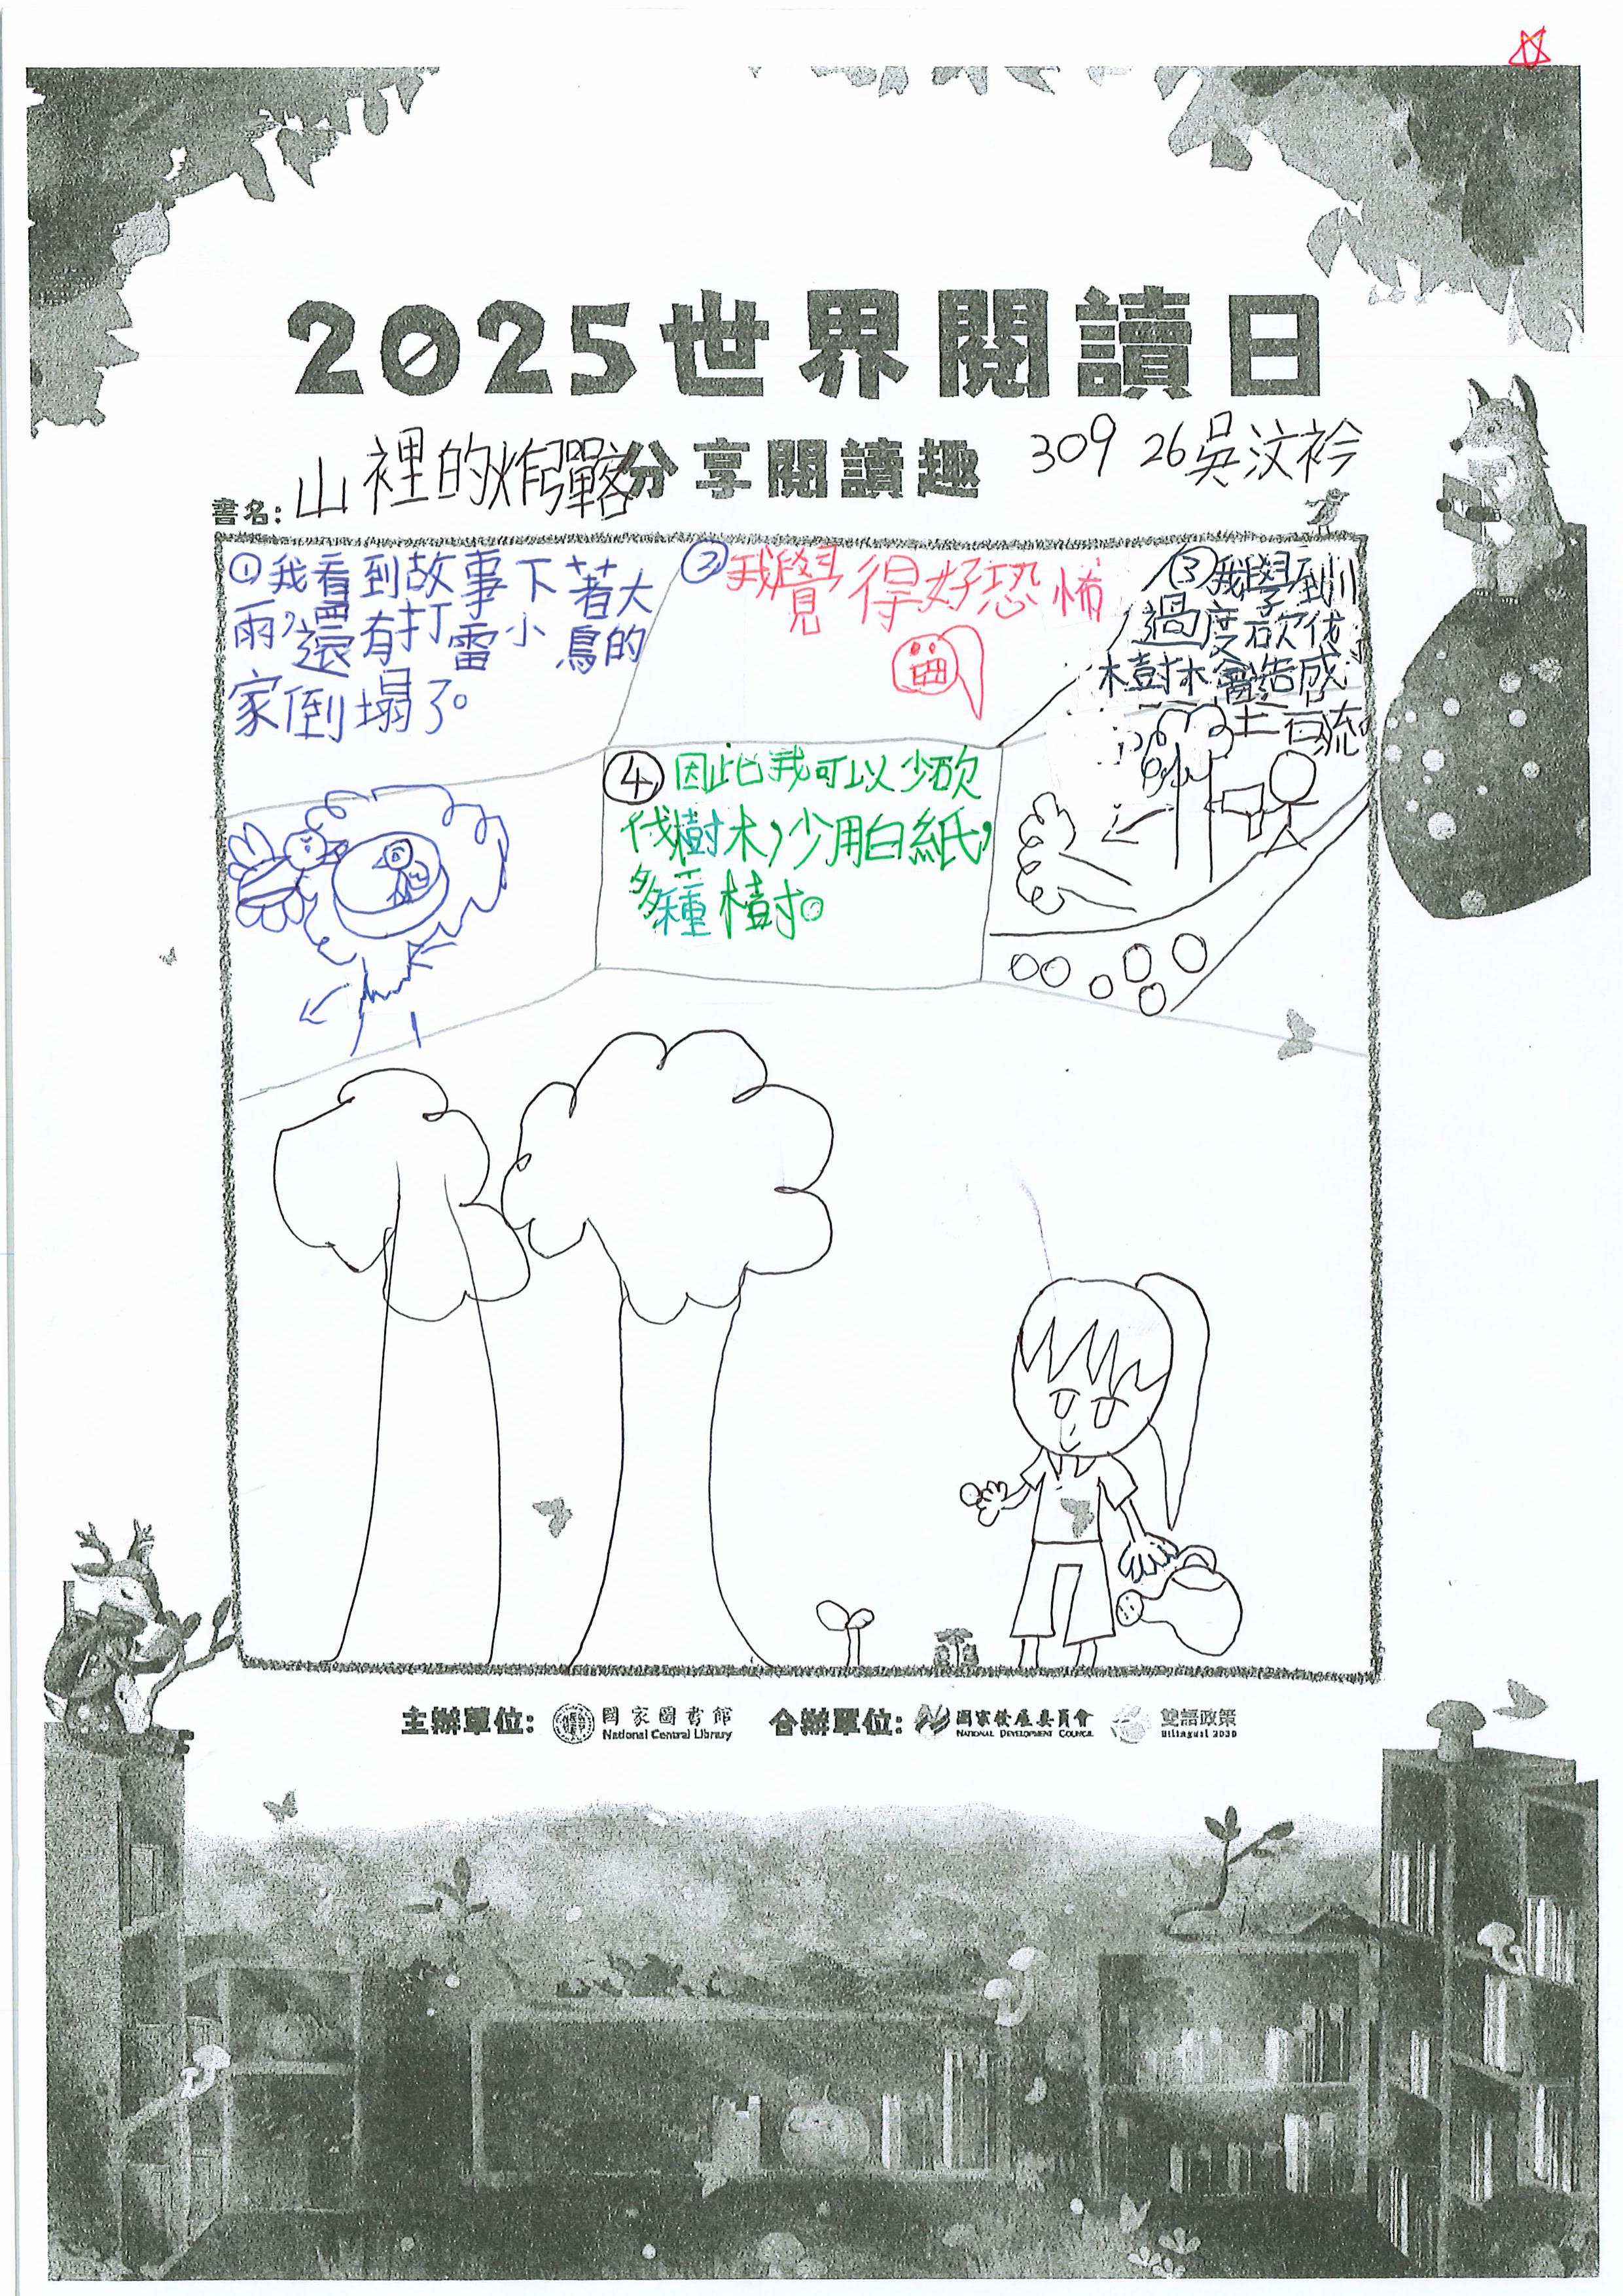 2025世界閱讀日
分享閱讀趣
309 26吳汶衿
書名:山裡的炸彈客
①我看到故事下著大
雨,還有打雷小鳥的
家倒塌了。
②我覺得好恐怖
③我學到
過度砍伐
樹木會造成
土石流。
④因此我可以少砍
伐樹木,少用白紙,
多種樹。
主辦單位: 國家圖書館 National Central Library 合辦單位: 國家發展委員會 NATIONAL DEVELOPMENT COUNCIL 雙語政策 Bilingual 2030